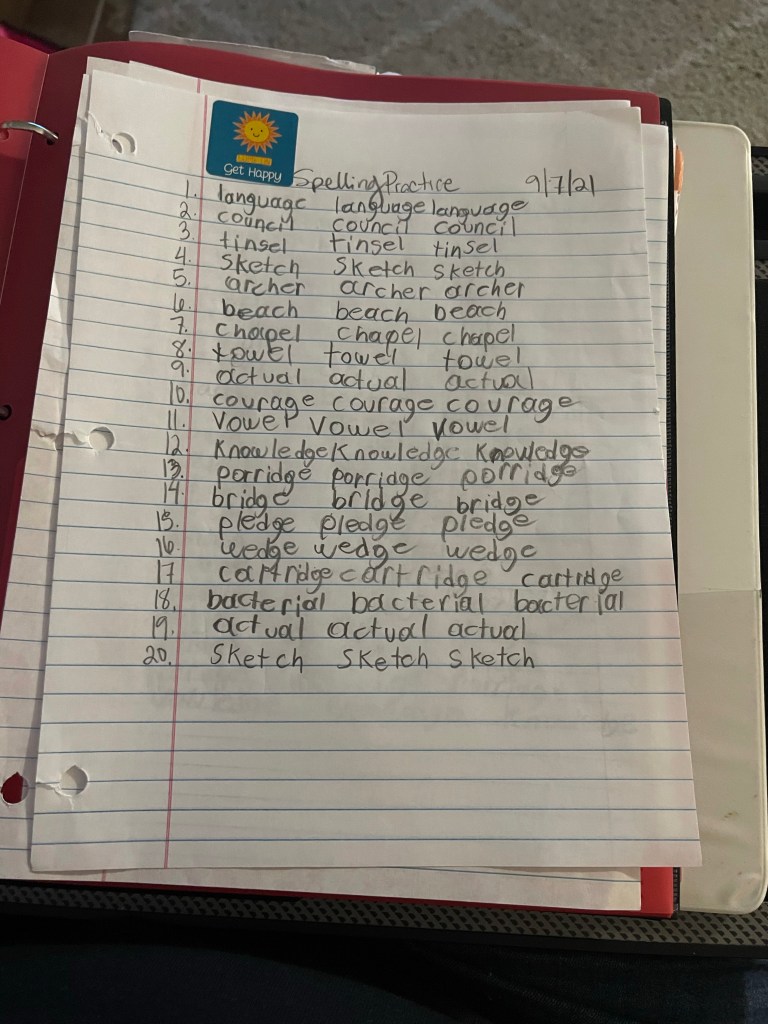 Get Happy
Spelling Practice 9/7/21
1. language language language
2. council council council
3. tinsel tinsel tinsel
4. Sketch Sketch Sketch
5. archer archer archer
6. beach beach beach
7. Chapel chapel chapel
8. towel towel towel
9. actual actual actual
10. courage courage courage
11. Vowel Vowel Vowel
12. Knowledge Knowledge Knowledge
13. porridge porridge porridge
14. bridge bridge bridge
15. pledge pledge pledge
16. wedge wedge wedge
17 cartridge cartridge cartridge
18. bacterial bacterial bacterial
19. actual actual actual
20. Sketch Sketch Sketch